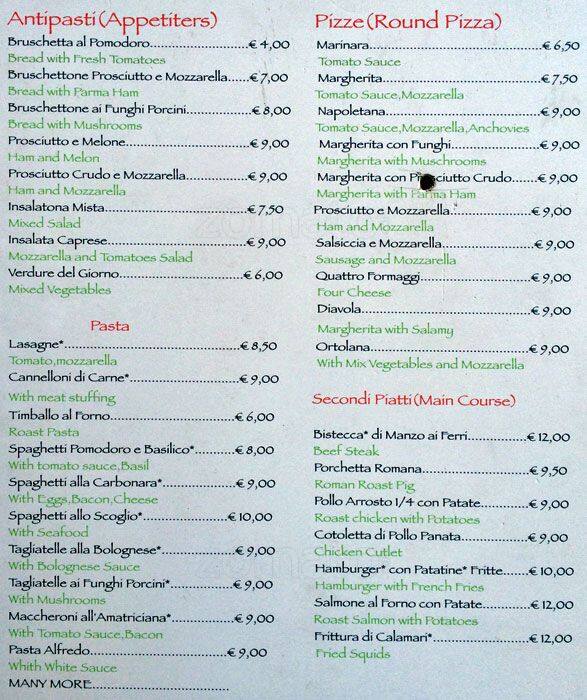 Antipasti (Appetiters)
Bruschetta al Pomodoro....................€ 4,00
Bread with Fresh Tomatoes
Bruschettone Prosciutto e Mozzarella......€ 7,00
Bread with Parma Ham
Bruschettone ai Funghi Porcini................€ 8,00
Bread with Mushrooms
Prosciutto e Melone.........................€ 9,00
Ham and Melon
Prosciutto Crudo e Mozzarella..............€ 9,00
Ham and Mozzarella
Insalatona Mista.............................€ 7,50
Mixed Salad
Insalata Caprese............................€ 9,00
Mozzarella and Tomatoes Salad
Verdure del Giorno.........................€ 6,00
Mixed Vegetables
Pasta
Lasagne*...................................€ 8,50
Tomato,mozzarella
Cannelloni di Carne*.......................€ 9,00
With meat stuffing
Timballo al Forno...........................€ 6,00
Roast Pasta
Spaghetti Pomodoro e Basilico*........€ 8,00
With tomato sauce,Basil
Spaghetti alla Carbonara*...............€ 9,00
With Eggs,Bacon,Cheese
Spaghetti allo Scoglio*.................€ 10,00
With Seafood
Tagliatelle alla Bolognese*...............€ 9,00
With Bolognese Sauce
Tagliatelle ai Funghi Porcini*............€ 9,00
With Mushrooms
Maccheroni all'Amatriciana*............€ 9,00
With Tomato Sauce,Bacon
Pasta Alfredo............................€ 9,00
Whith White Sauce
MANY MORE..............................
Pizze (Round Pizza)
Marinara.....................................€ 6,50
Tomato Sauce
Margherita..................................€ 7,50
Tomato Sauce,Mozzarella
Napoletana.................................€ 9,00
Tomato Sauce,Mozzarella,Anchovies
Margherita con Funghi....................€ 9,00
Margherita with Muschrooms
Margherita con Prosciutto Crudo......€ 9,00
Margherita with Parma Ham
Prosciutto e Mozzarella..................€ 9,00
Ham and Mozzarella
Salsiccia e Mozzarella.....................€ 9,00
Sausage and Mozzarella
Quattro Formaggi.........................€ 9,00
Four Cheese
Diavola.....................................€ 9,00
Margherita with Salamy
Ortolana...................................€ 9,00
With Mix Vegetables and Mozzarella
Secondi Piatti (Main Course)
Bistecca* di Manzo ai Ferri..............€ 12,00
Beef Steak
Porchetta Romana.......................€ 9,50
Roman Roast Pig
Pollo Arrosto 1/4 con Patate...........€ 9,00
Roast chicken with Potatoes
Cotoletta di Pollo Panata................€ 9,00
Chicken Cutlet
Hamburger* con Patatine* Fritte......€ 10,00
Hamburger with French Fries
Salmone al Forno con Patate...........€ 12,00
Roast Salmon with Potatoes
Frittura di Calamari*.....................€ 12,00
Fried Squids